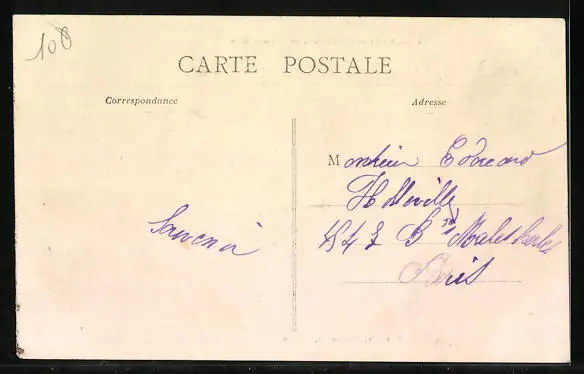 108
CARTE POSTALE
Correspondance
Adresse
Monsieur Edouard
Holleville
Souvenir
Bd Malesherbes
Paris